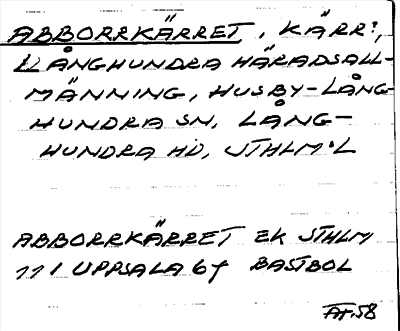 ABBORRKÄRRET, KÄRR!,
LÅNGHUNDRA HÄRADSALL-
MÄNNING, HUSBY-LÅNG-
HUNDRA SN, LÅNG-
HUNDRA HD, STHLM:L
ABBORRKÄRRET EK STHLM
111 UPPSALA 6f BASTBOL